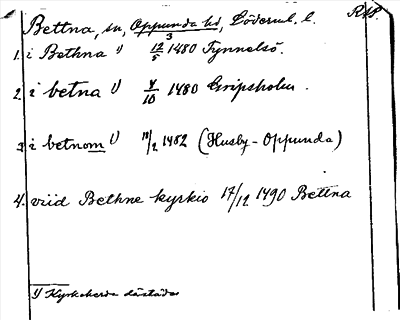 Bettna, sn, Oppunda hd, Södermanl. l.
1. i Bethna 1) 12/5 1480 Tynnelsö.
3
2. i betna 1) 4/10 1480 Gripsholm.
3. i betnom 1) /2 1482 (Husby-Oppunda)
4. viid Bethne kyrkio 17/12 1490 Bettna
1) Kyrkoherde därstädes